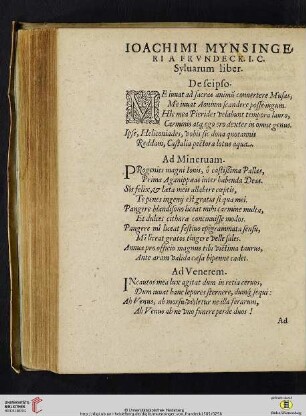 IOACHIMI MYNSINGE
RI A FRVNDECK I. C.
Syluarum liber.
De seipso.
ME iuuat ad sacras animũ conuertere Musas,
Me iuuat Aonium scandere posse iugum.
Hîc mea Pierides velabunt tempora lauro,
Carminis atque ego ero dexter in omne genus.
Ipse, Heliconiades, vobis sic dona quotannis
Reddam, Castalia pectora lotus aqua.
Ad Mineruam.
PRogenies magni Iouis, ô castissima Pallas,
Prima Aganippæas inter habenda Deas.
Sis felix, & læta meis allabere cœptis,
Te penes ingenij est gratia si qua mei.
Pangere blandisono liceat mihi carmine multa,
Et dulces cithara concinuisse modos.
Pangere mi liceat festiuo epigrammata sensu,
Mi liceat gratos tingere melle sales.
Annua pro officio magnum tibi victima taurus,
Ante aram valida cæsa bipenne cadet.
Ad Venerem.
INcautos mea lux agitat dum in retia ceruos,
Dum iuuat hanc lepores sternere, dumq́; sequi:
Ab Venus, ab morsu violetur ne illa ferarum,
Ab Venus ab ne vno funere perdæ duos!
Ad
© Universitätsbibliothek Heidelberg